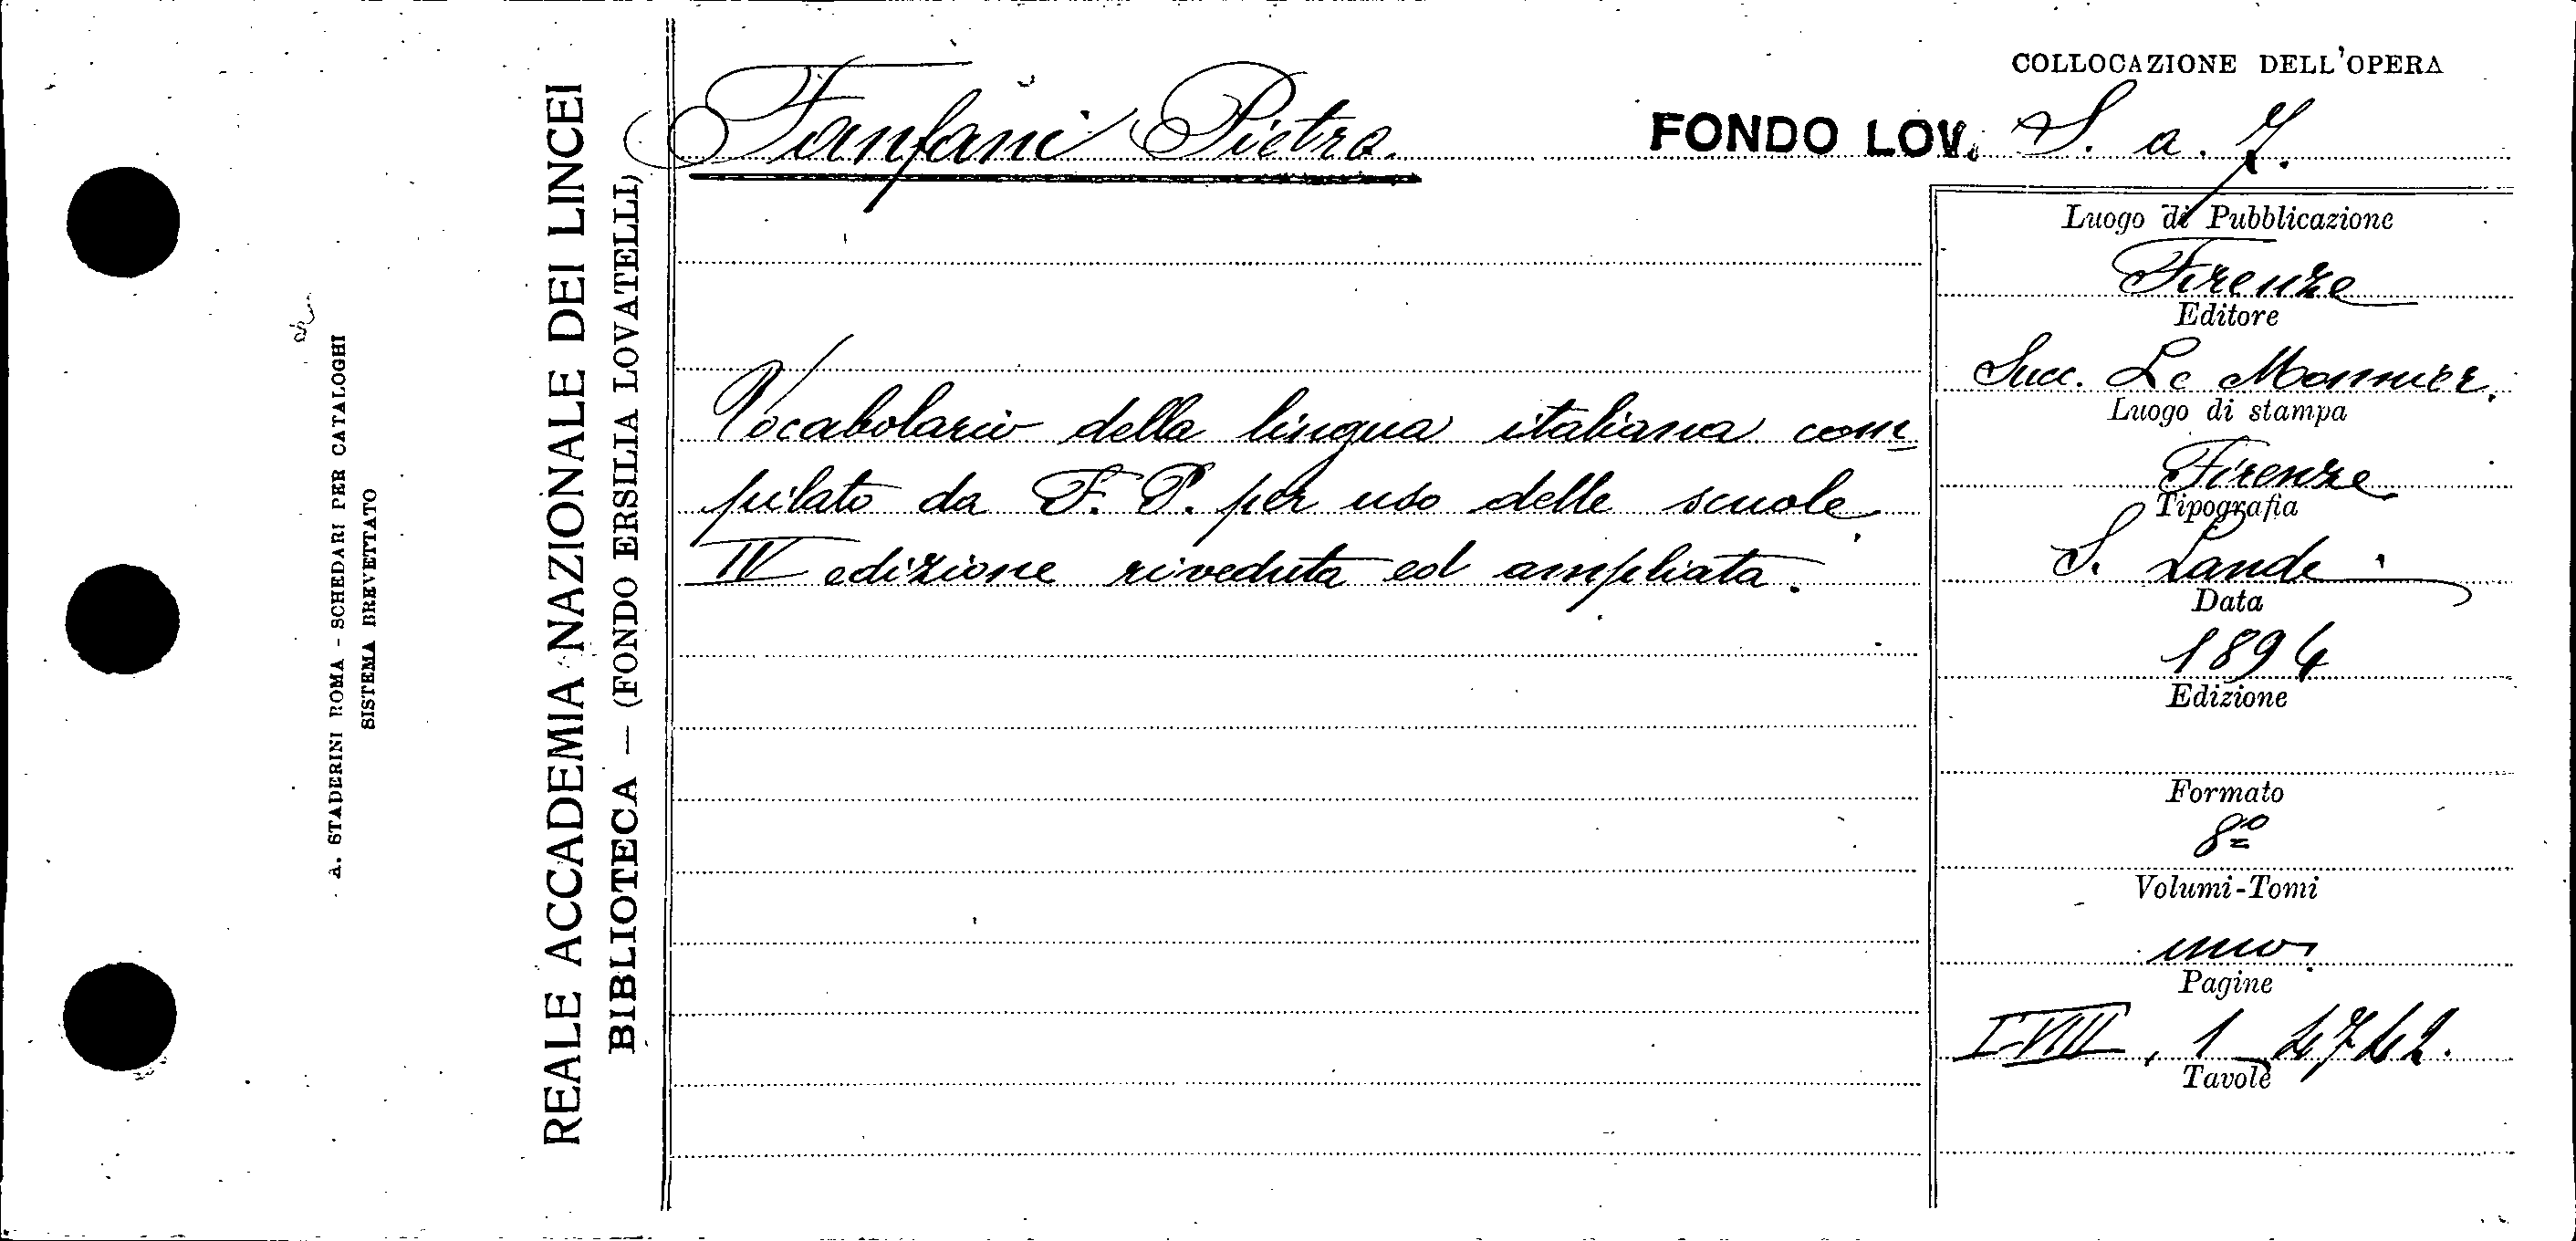 A. STADERINI ROMA - SCHEDARI PER CATALOGHI
SISTEMA BREVETTATO
REALE ACCADEMIA NAZIONALE DEI LINCEI
BIBLIOTECA — (FONDO ERSILIA LOVATELLI)
Fanfani Pietro.
Vocabolario della lingua italiana com=
pilato da F. P. per uso delle scuole.
IV edizione riveduta ed ampliata.
COLLOCAZIONE DELL'OPERA
FONDO LOV. S. a. 7.
Luogo di Pubblicazione
Firenze
Editore
Succ. Le Monnier.
Luogo di stampa
Firenze
Tipografia
S. Landi
Data
1894
Edizione
Formato
8º
Volumi-Tomi
uno
Pagine
I-VIII, 1_
Tavole